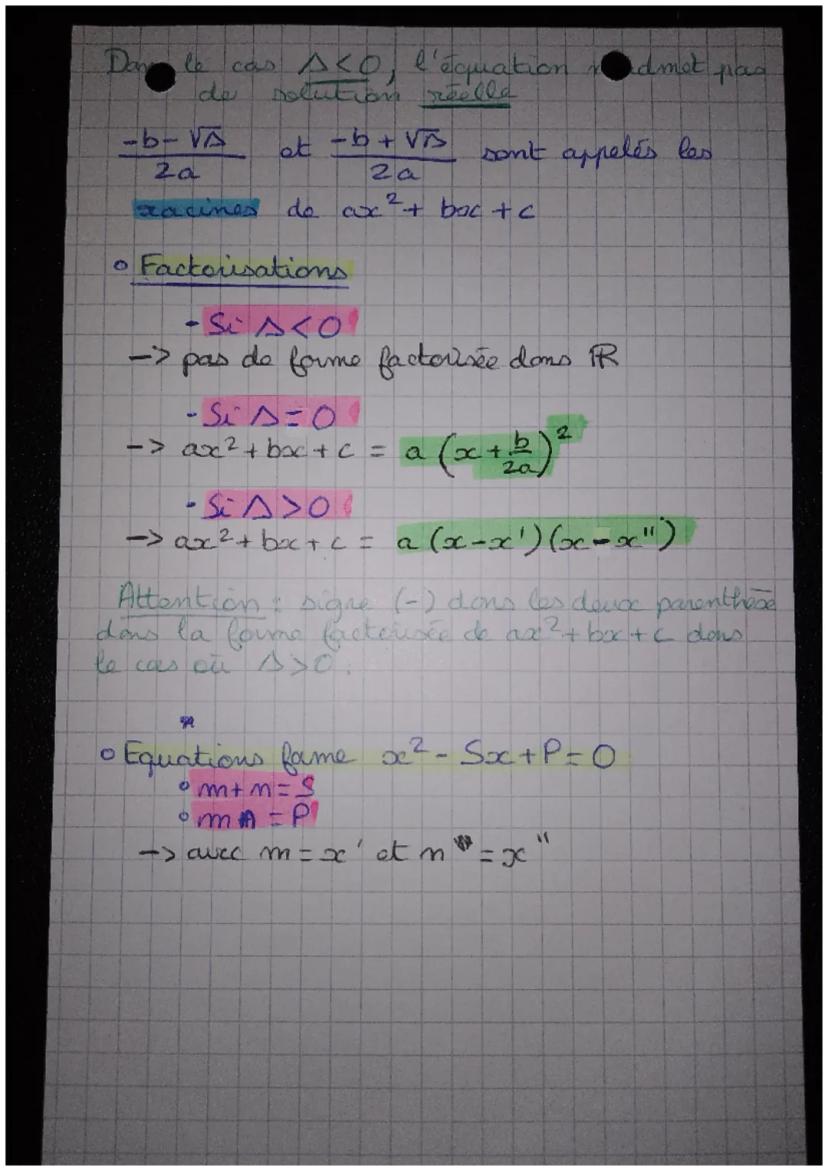 Dans le cas Δ<0, l'équation n'admet pas
de solution réelle
(-b-√Δ)/2a et (-b+√Δ)/2a sont appelés les
racines de ax²+bx+c
• Factorisations
- Si Δ<0
-> pas de forme factorisée dans ℝ
- Si Δ=0
-> ax²+bx+c = a(x+b/2a)²
- Si Δ>0
-> ax²+bx+c = a(x-x')(x-x'')
Attention : signe (-) dans les deux parenthèse
dans la forme factorisée de ax²+bx+c dans
le cas où Δ>0.
• Equations forme x²-Sx+P=0
• m+n=S
• mn=P
-> avec m=x' et n=x''